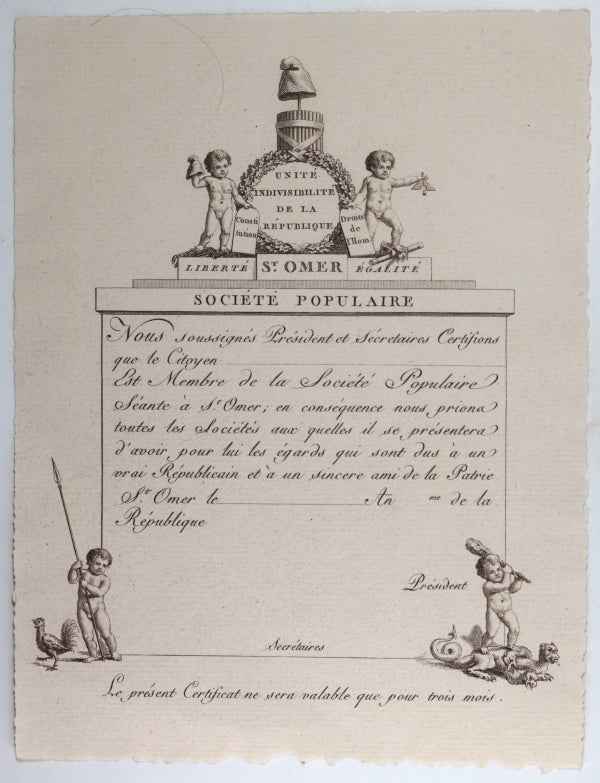 UNITÉ
INDIVISIBILITÉ
DE LA
RÉPUBLIQUE
Consti
tution
Droits
de
l'Hom.
LIBERTÉ ST. OMER ÉGALITÉ
SOCIÉTÉ POPULAIRE
Nous soussignés Président et Sécretaires Certifions
que le Citoyen
Est Membre de la Société Populaire
Séante à St. Omer; en conséquence nous prions
toutes les Sociétés aux quelles il se présentera
d'avoir pour lui les égards qui sont dus à un
vrai Républicain et à un sincere ami de la Patrie
St. Omer le An me de la
République
Président
Secrétaires
Le présent Certificat ne sera valable que pour trois mois.